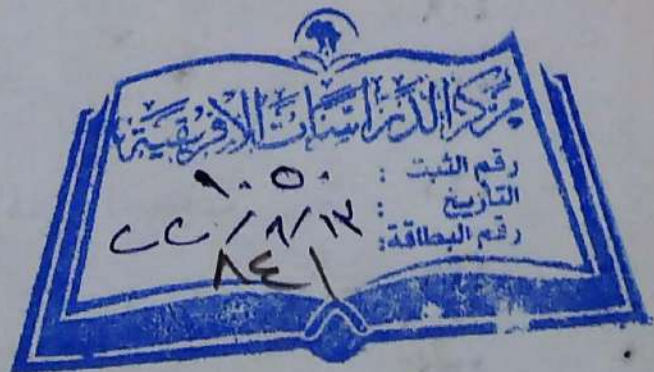 مركز الدراسات الافريقية
رقم الثبت : ١٠٥٠
التأريخ : ٢٢/٨/١٣
رقم البطاقة: ٨٤١